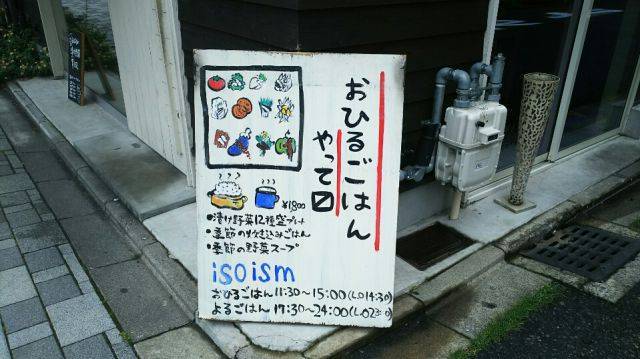 おひるごはん
やって〼
¥1800
・漬け野菜12種盛プレート
・季節の炊き込みごはん
・季節の野菜スープ
isoism
おひるごはん 11:30〜15:00(LO14:30)
よるごはん 17:30〜24:00(LO23:00)